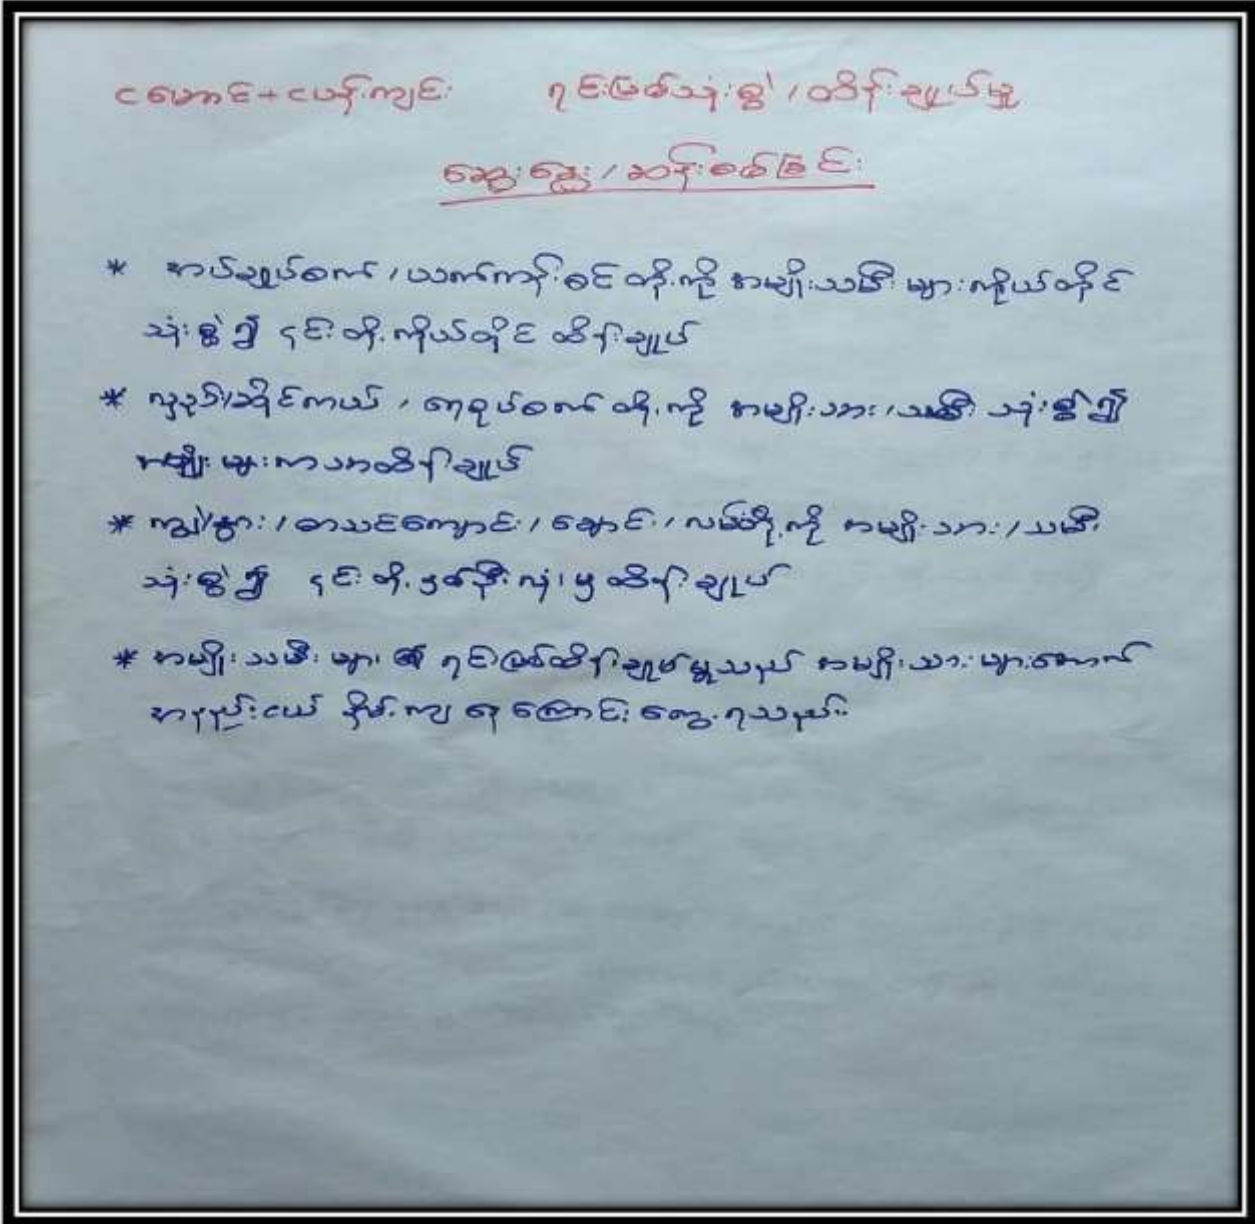 ငမောင်+ငယန်းကျင်း ရင်းမြစ်သုံးစွဲ/ထိန်းချုပ်မှု
ဆွေးနွေး/ဆန်းစစ်ခြင်း
* အပ်ချုပ်စက်/ယက်ကန်းစင် တို့ကို အမျိုးသမီး များကိုယ်တိုင်
သုံးစွဲ၍ ၎င်းတို့ ကိုယ်တိုင် ထိန်းချုပ်
* လှည်း/ဆိုင်ကယ်/ရေစုပ်စက် တို့ကို အမျိုးသား/သမီး သုံးစွဲ၍
အမျိုးသားကသာထိန်းချုပ်
* ကျွဲ/နွား/စာသင်ကျောင်း/ချောင်း/လမ်းတို့ကို အမျိုးသား/သမီး
သုံးစွဲ၍ ၎င်းတို့ နှစ်ဦးလုံးမှ ထိန်းချုပ်
* အမျိုးသမီးများ၏ ရင်းမြစ်ထိန်းချုပ်မှုသည် အမျိုးသားများအောက်
အနည်းငယ် နိမ့်ကျနေကြောင်း တွေ့ရသည်။